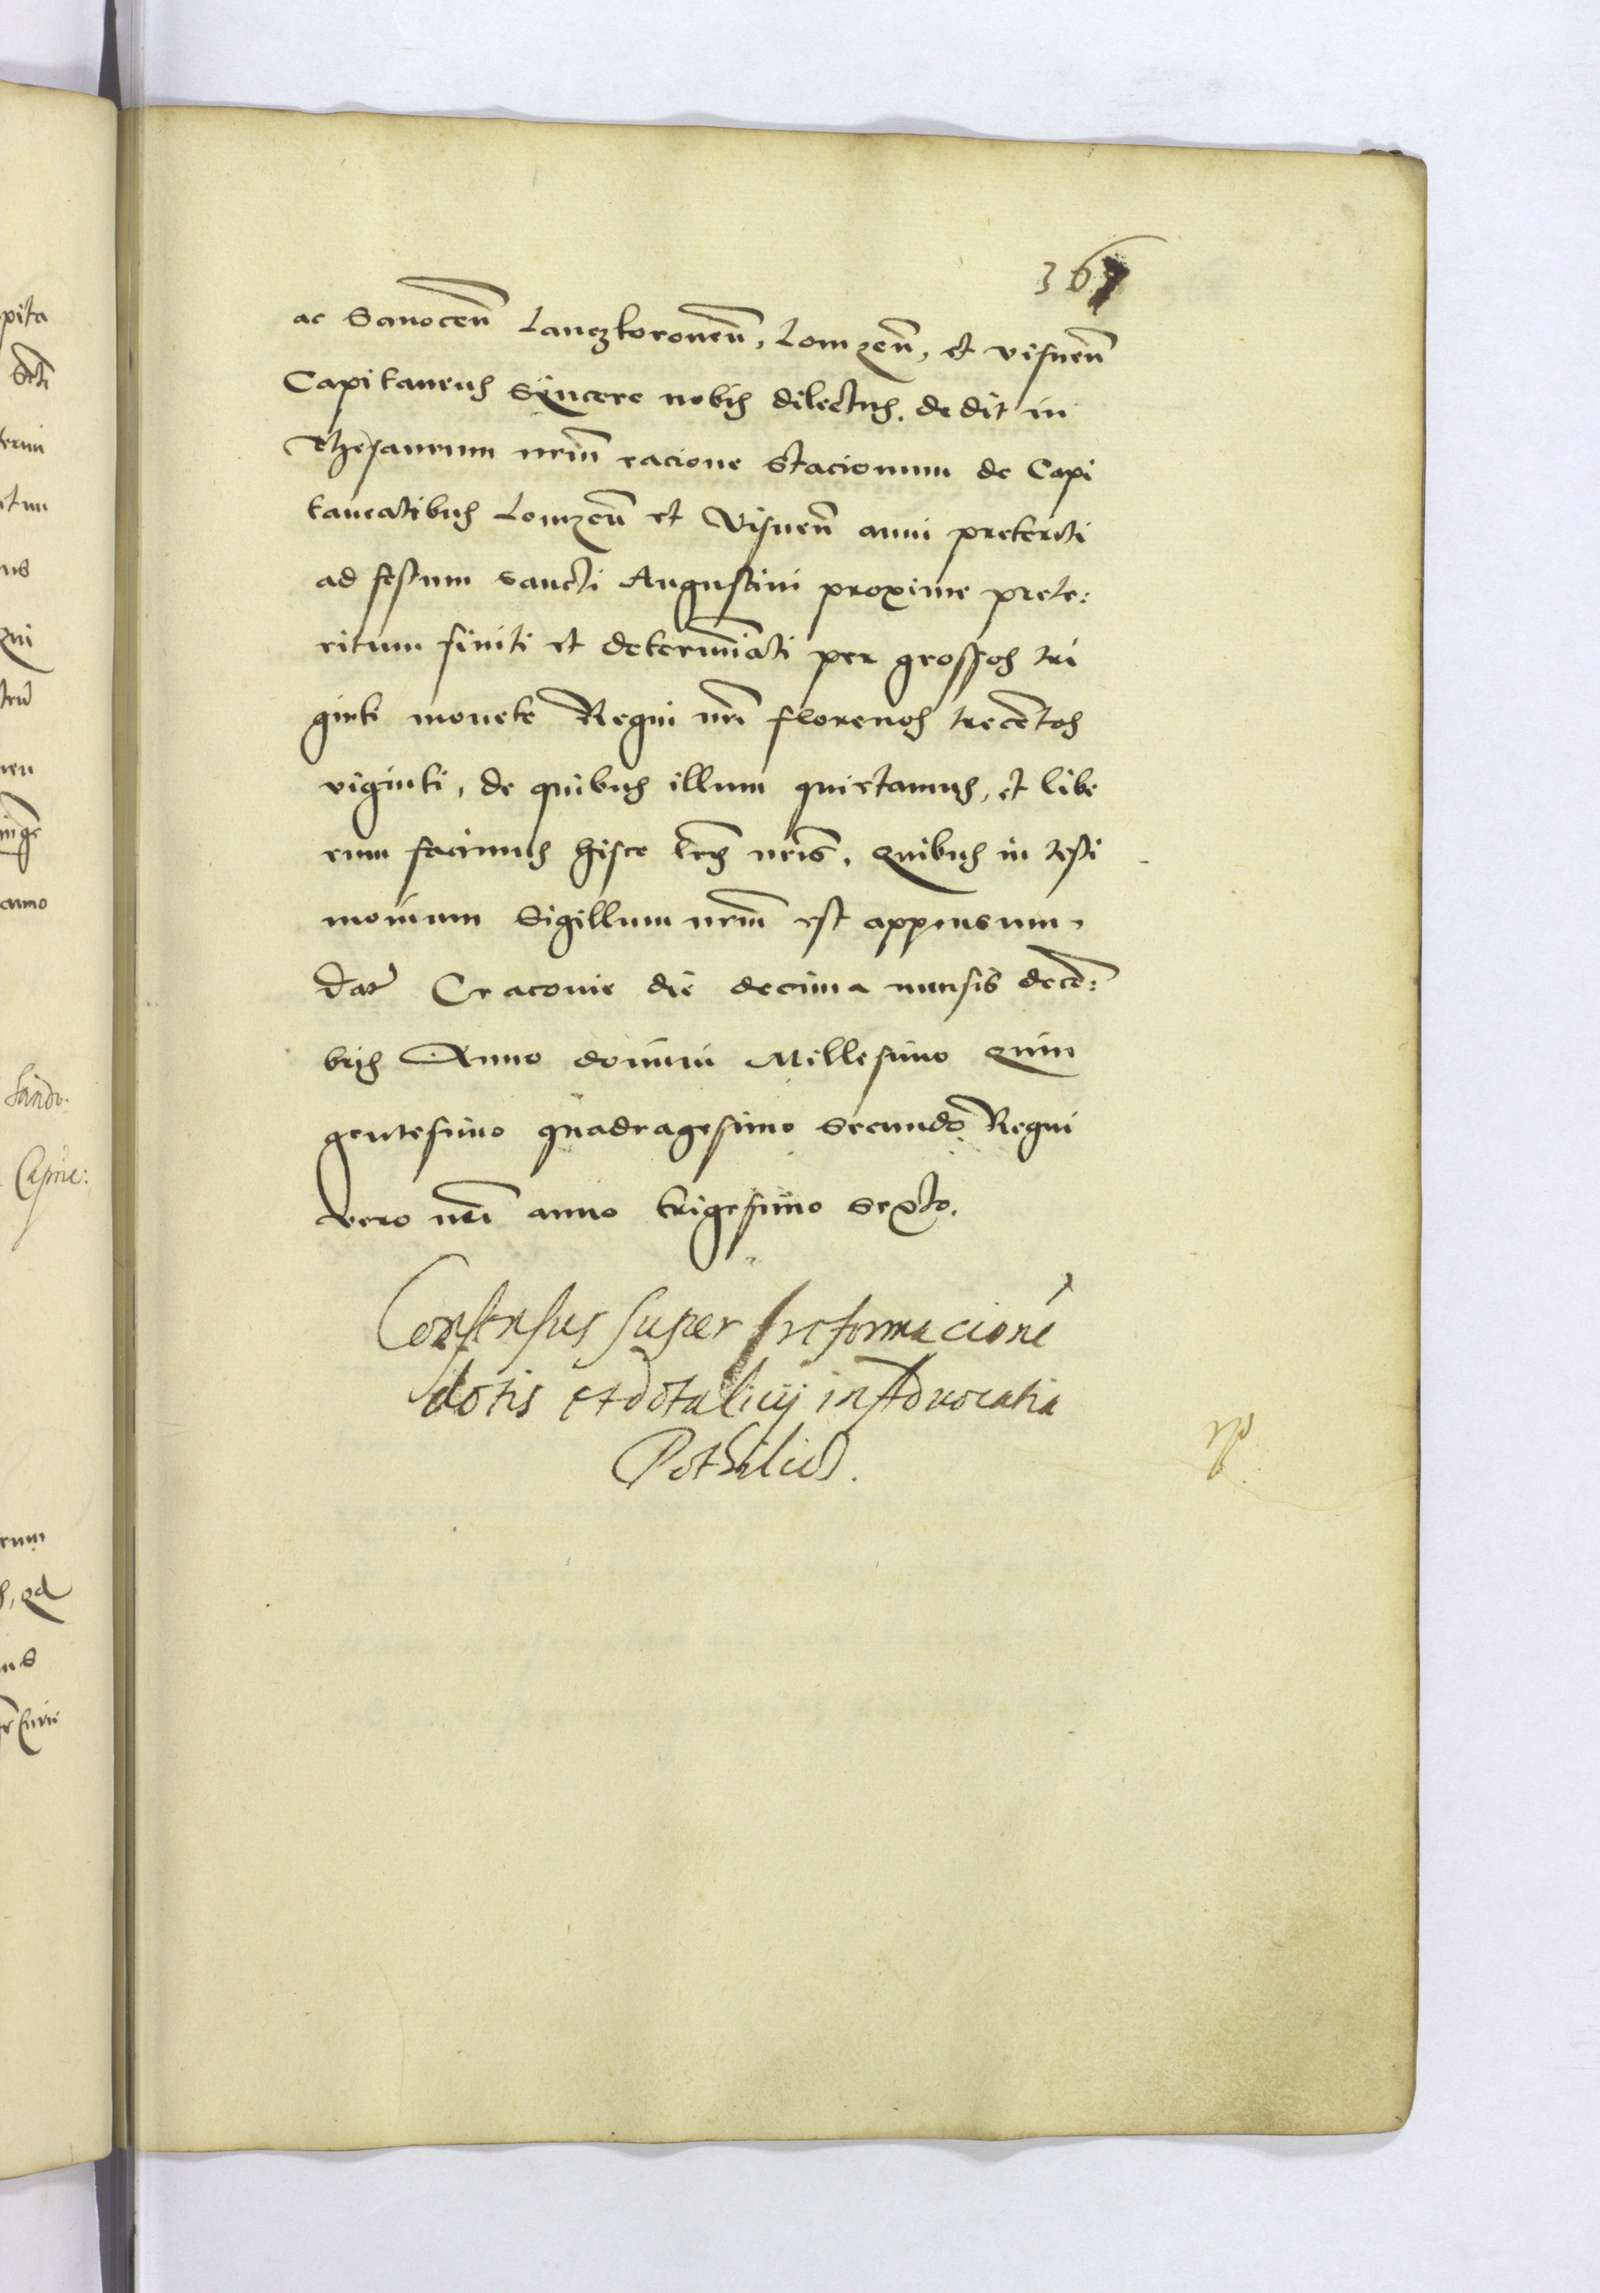 367
ac Sanocen̄ Lanczkoronen̄, Lomzen̄, et visnen̄
Capitaneus syncere nobis dilectus, dedit in
Thesaurum nrm̄ racione stacionum de Capi
taneatibus Lomzen̄ et Visnen̄ anni preteriti
ad festum sancti Augustini proxime prete:
ritum finiti et determinati per grossos tri
ginti monete Regni nrī florenos trecētos
viginti, de quibus illum quietamus, et libe
rum facimus hisce lrīs nrīs, quibus in testi
monium Sigillum nrm̄ est appensum,
Dat̄ Cracovie die decima mensis decē:
bris Anno domini Millesimo quin
gentesimo quadragesimo secundo Regni
vero nrī anno trigesimo sexto.
Consensus super reformacionē
dotis et dotalicij in Advocatia